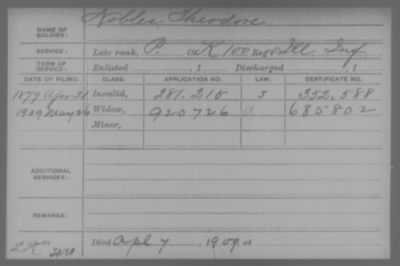 NAME OF SOLDIER: Nobles Theodore
SERVICE: Late rank, P. Co. K 100 Reg't Ill. Inf.
TERM OF SERVICE: Enlisted , 1 Discharged , 1
DATE OF FILING. CLASS. APPLICATION NO. LAW. CERTIFICATE NO.
1879 Apr. 21 Invalid, 281.218 352.588
1909 May 26 Widow, 920726 685802
Minor,
ADDITIONAL SERVICES:
REMARKS:
Died Apl 7, 1909, at